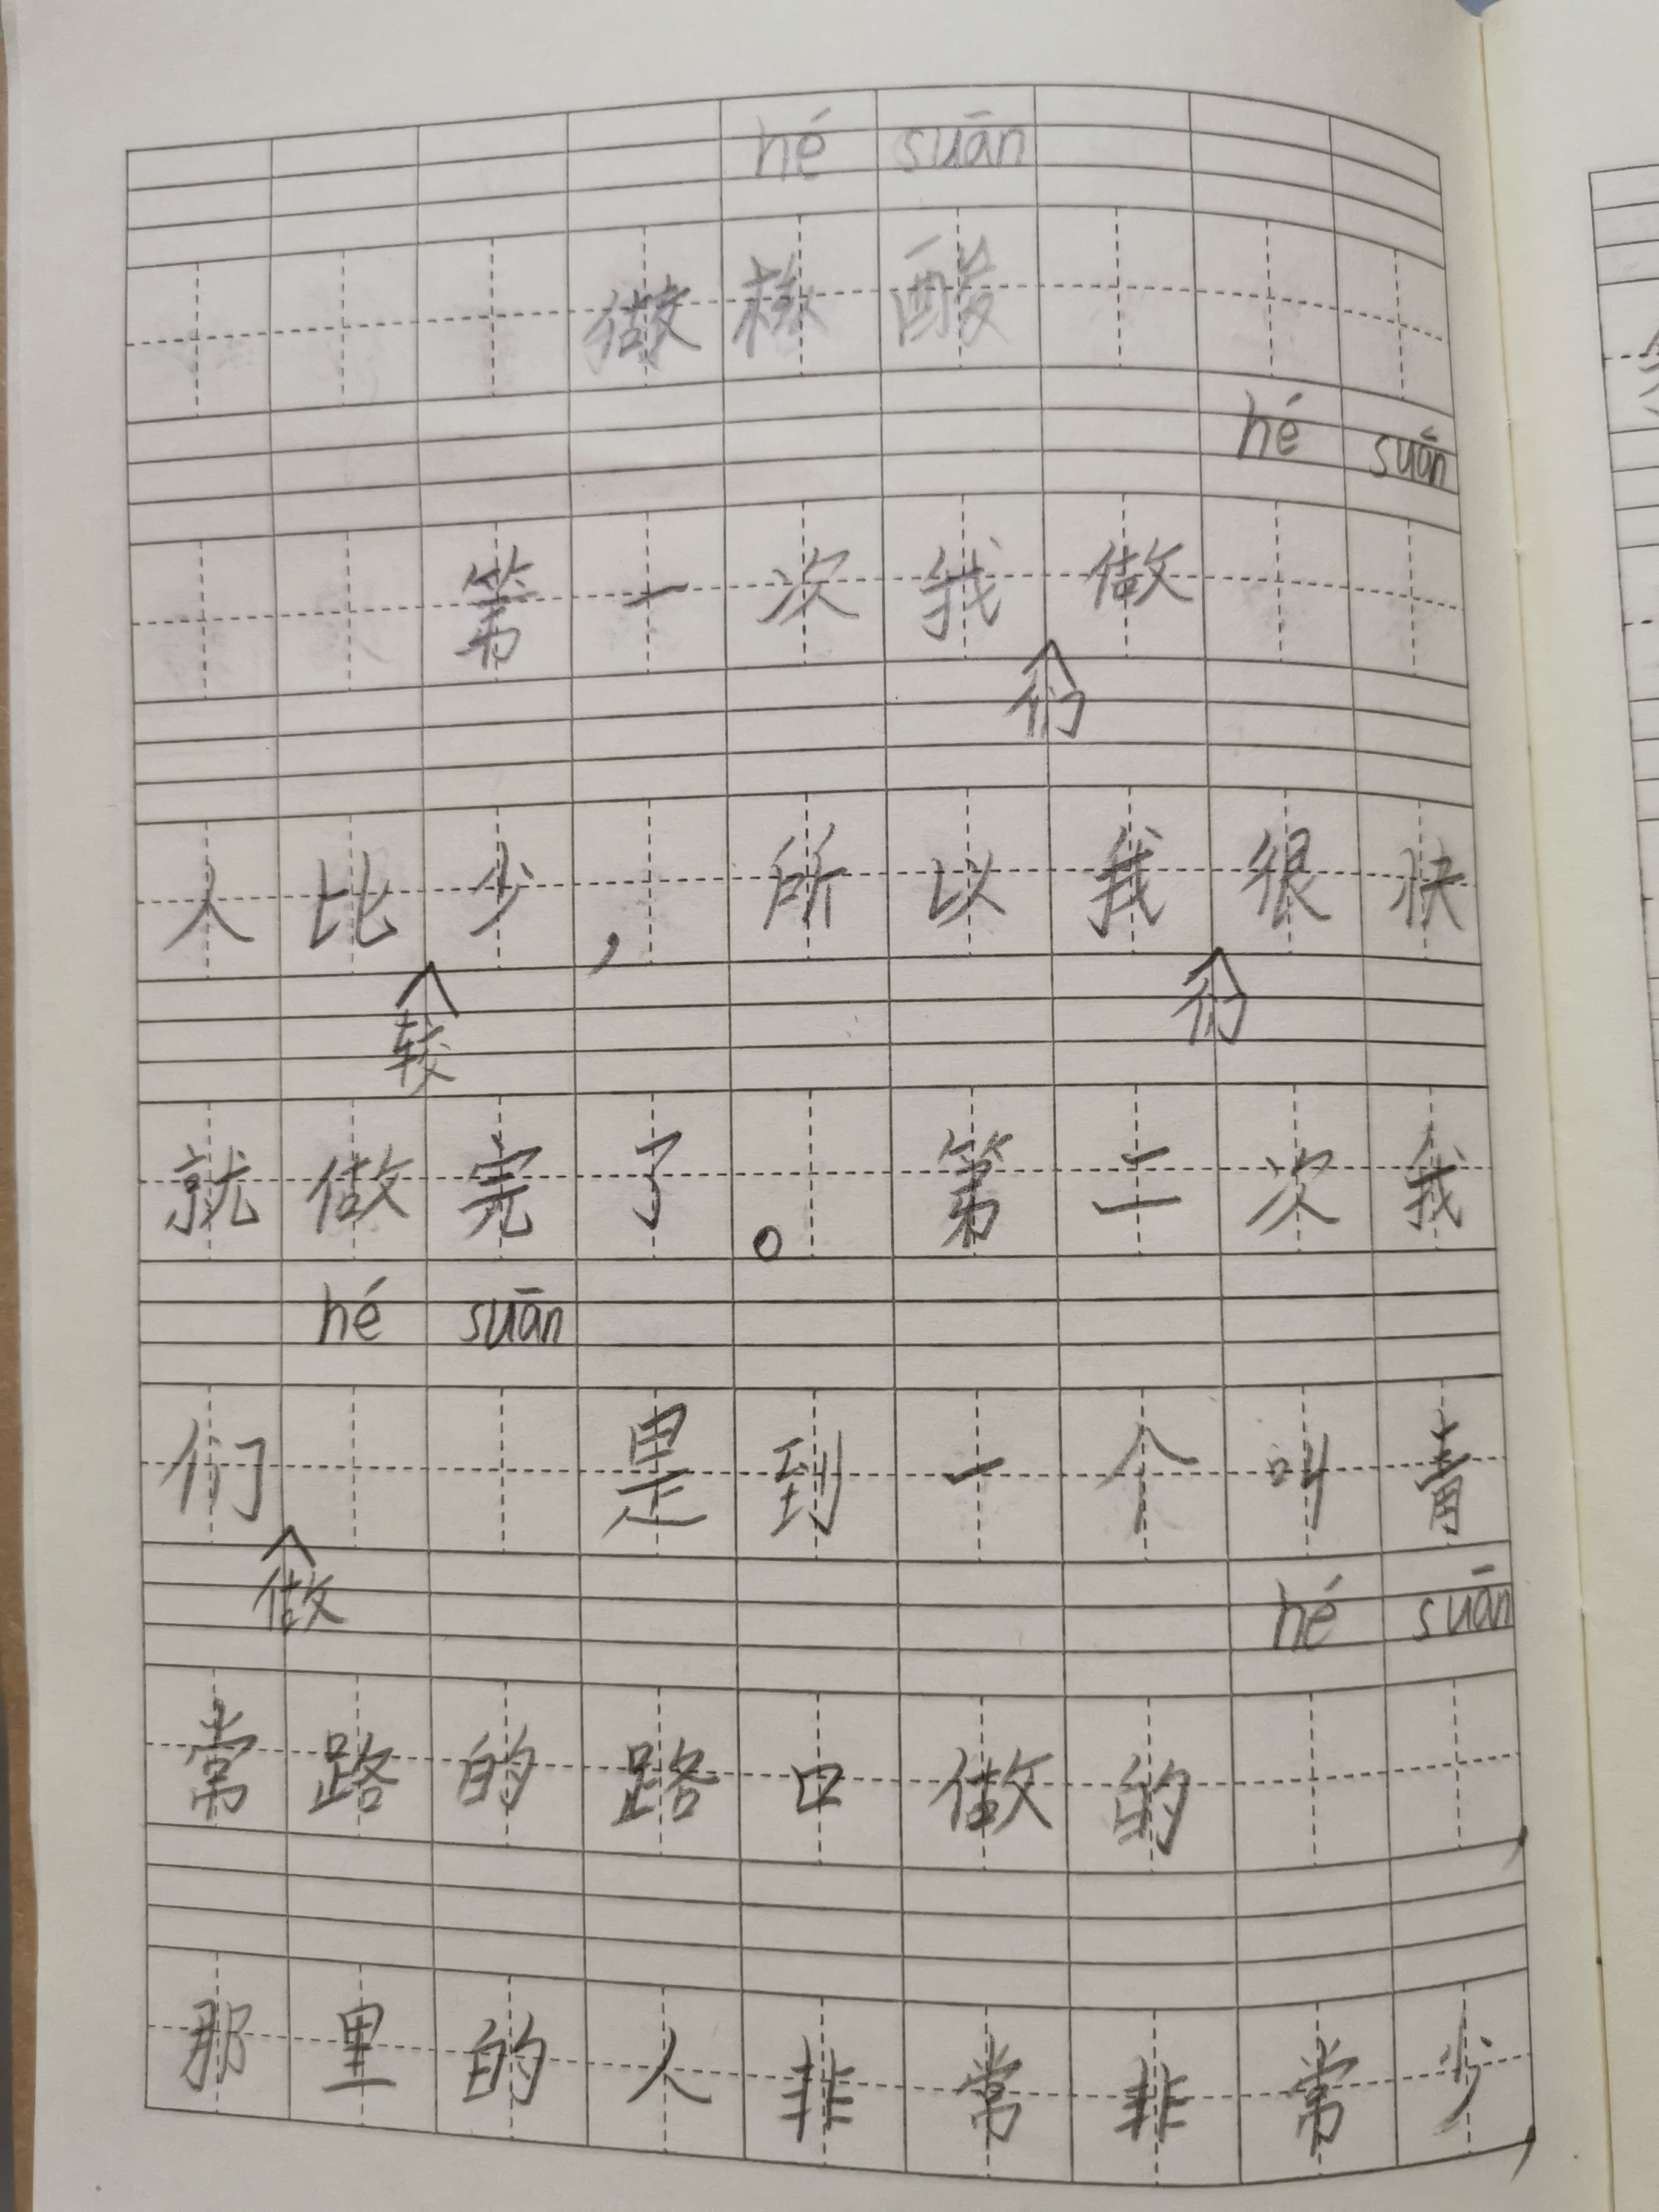 hé suān
做核酸
hé suān
第一次我做
们
人比少，所以我很快
较 们
就做完了。第二次我
hé suān
们 是到一个叫青
做
hé suān
常路的路口做的 ，
那里的人非常非常少，